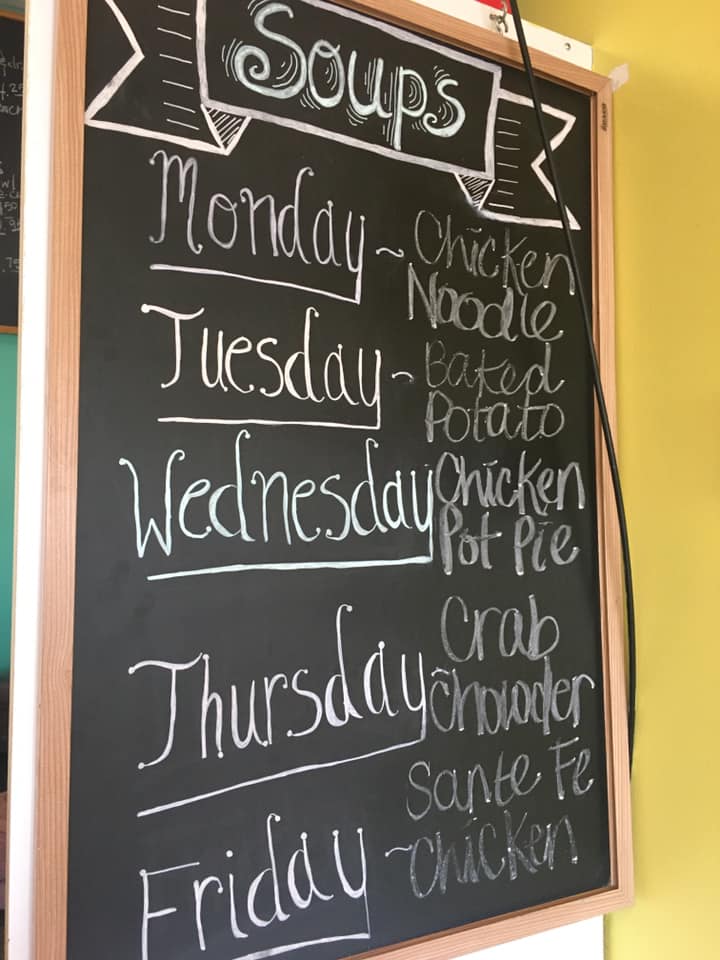 Soups
Monday ~ Chicken
Noodle
Tuesday ~ Baked
Potato
Wednesday Chicken
Pot Pie
Crab
Thursday ~ Chowder
Sante Fe
Friday ~ Chicken